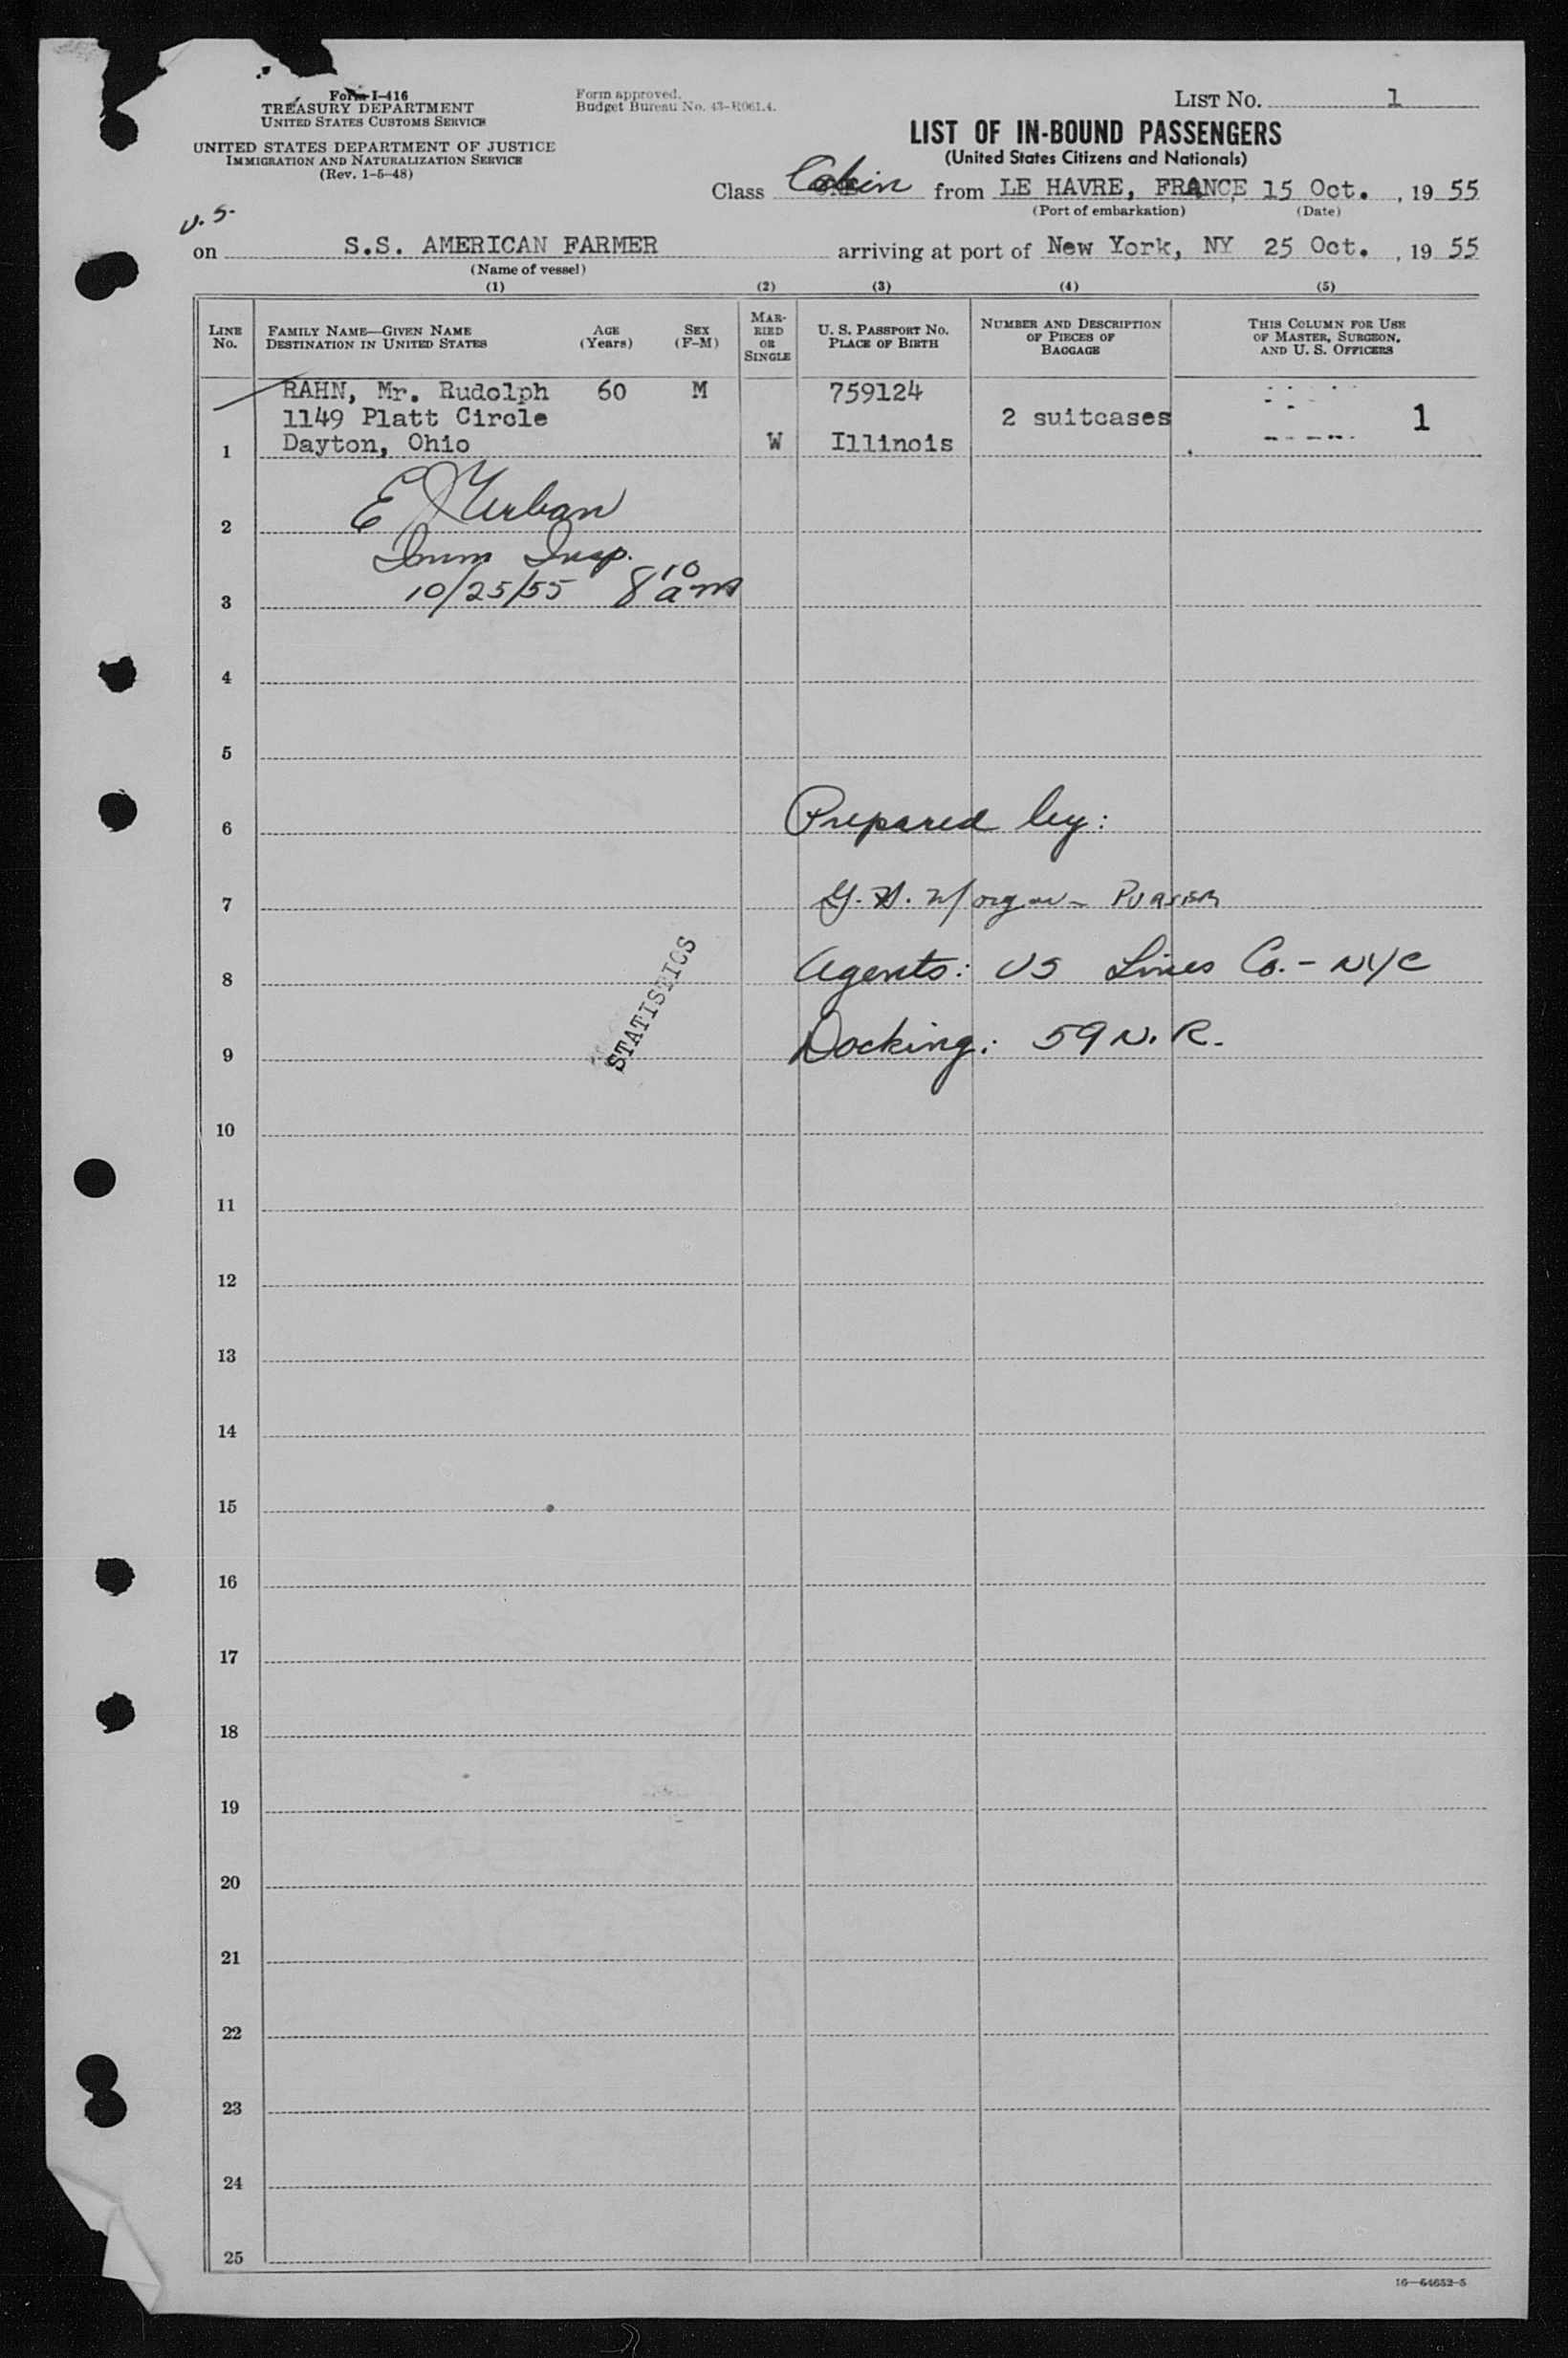 Form I-416
TREASURY DEPARTMENT
UNITED STATES CUSTOMS SERVICE
UNITED STATES DEPARTMENT OF JUSTICE
IMMIGRATION AND NATURALIZATION SERVICE
(Rev. 1-5-48)
Form approved.
Budget Bureau No. 43-R061.4.
LIST No. 1
LIST OF IN-BOUND PASSENGERS
(United States Citizens and Nationals)
Class Cabin from LE HAVRE, FRANCE, 15 Oct. , 19 55
(Port of embarkation) (Date)
U.S.
on S.S. AMERICAN FARMER arriving at port of New York, NY 25 Oct. , 19 55
(Name of vessel)
(1) (2) (3) (4) (5)
LINE No.
FAMILY NAME—GIVEN NAME
DESTINATION IN UNITED STATES
AGE (Years)
SEX (F-M)
MARRIED OR SINGLE
U. S. PASSPORT NO.
PLACE OF BIRTH
NUMBER AND DESCRIPTION OF PIECES OF BAGGAGE
THIS COLUMN FOR USE OF MASTER, SURGEON, AND U. S. OFFICERS
RAHN, Mr. Rudolph 60 M 759124
1149 Platt Circle 2 suitcases 1
1 Dayton, Ohio W Illinois
2 E Urban
Imm Insp.
3 10/25/55 8 10 am
4
5
6 Prepared by:
7 Morgan - PURSER
8 Agents: US Lines Co. - NYC
STATISTICS
9 Docking: 59 N. R.
10
11
12
13
14
15
16
17
18
19
20
21
22
23
24
25
16—54652-5